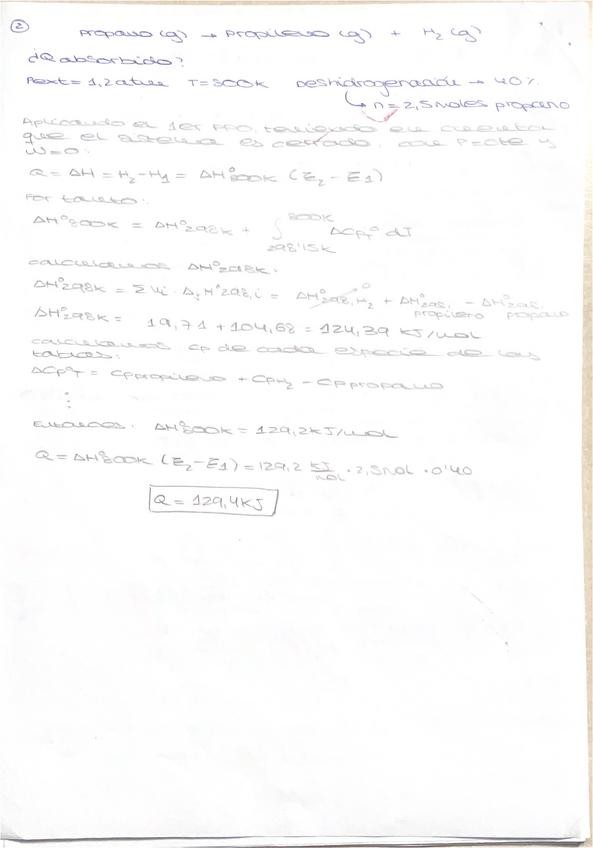 ②
Propano (g) → Propileno (g) + H₂ (g)
¿Q absorbido?
Pext = 1,2 atm T = 800K Deshidrogenación → 40%
↳ n = 2,5 moles propano
Aplicando el 1er PPO, teniendo en cuenta
que el sistema es cerrado, con P=cte y
W=0:
Q = ΔH = H₂ - H₁ = ΔH°800K (ξ₂ - ξ₁)
Por tanto:
ΔH°800K = ΔH°298K + ∫ 298'15K 800K ΔCp°T dT
Calculamos ΔH°298K:
ΔH°298K = Σ νi · Δf H°298,i = ΔH°298,H₂ 0 + ΔH°298, propileno - ΔH°298, propano
ΔH°298K = 19,71 + 104,68 = 124,39 KJ/mol
Calculamos Cp de cada especie de las
tablas:
ΔCp°T = Cp propileno + Cp H₂ - Cp propano
⋮
Entonces: ΔH°800K = 129,2 kJ/mol
Q = ΔH°800K (ξ₂ - ξ₁) = 129,2 KJ/mol · 2,5 mol · 0'40
Q = 129,4 KJ